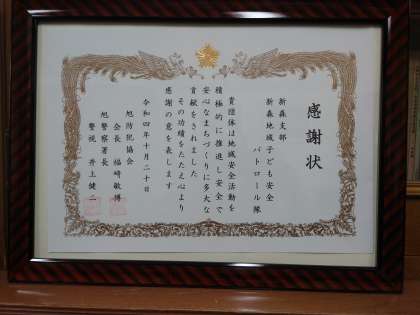 感謝状
新森支部
新森地域子ども安全
パトロール隊
貴団体は地域安全活動を
積極的に推進し安全で
安心なまちづくりに多大な
貢献をされました
その功績をたたえ心より
感謝の意を表します
令和四年十月二十日
旭防犯協会
会長 福﨑敏博
旭警察署長
警視 井上健二